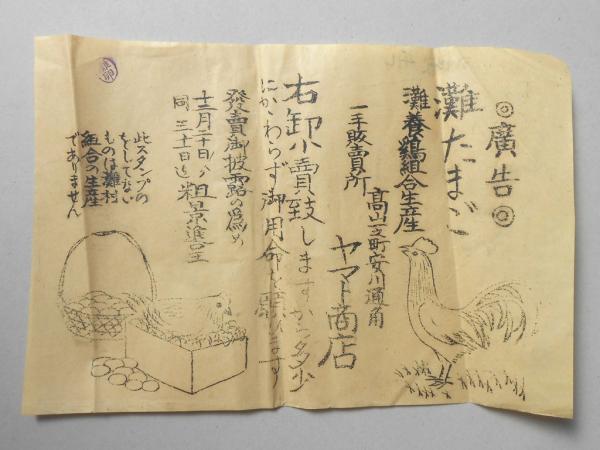 ◎廣告◎
灘たまご
灘養鶏組合生産
高山上町安川通角
一手販賣所
ヤマト商店
右卸小賣致しますから多少
にかゝわらず御用命を願います
發賣御披露の為め
十二月二十日ゟ
同三十日迄粗景進呈
此スタンプの
をしてない
ものは灘村
組合の生産
でありません